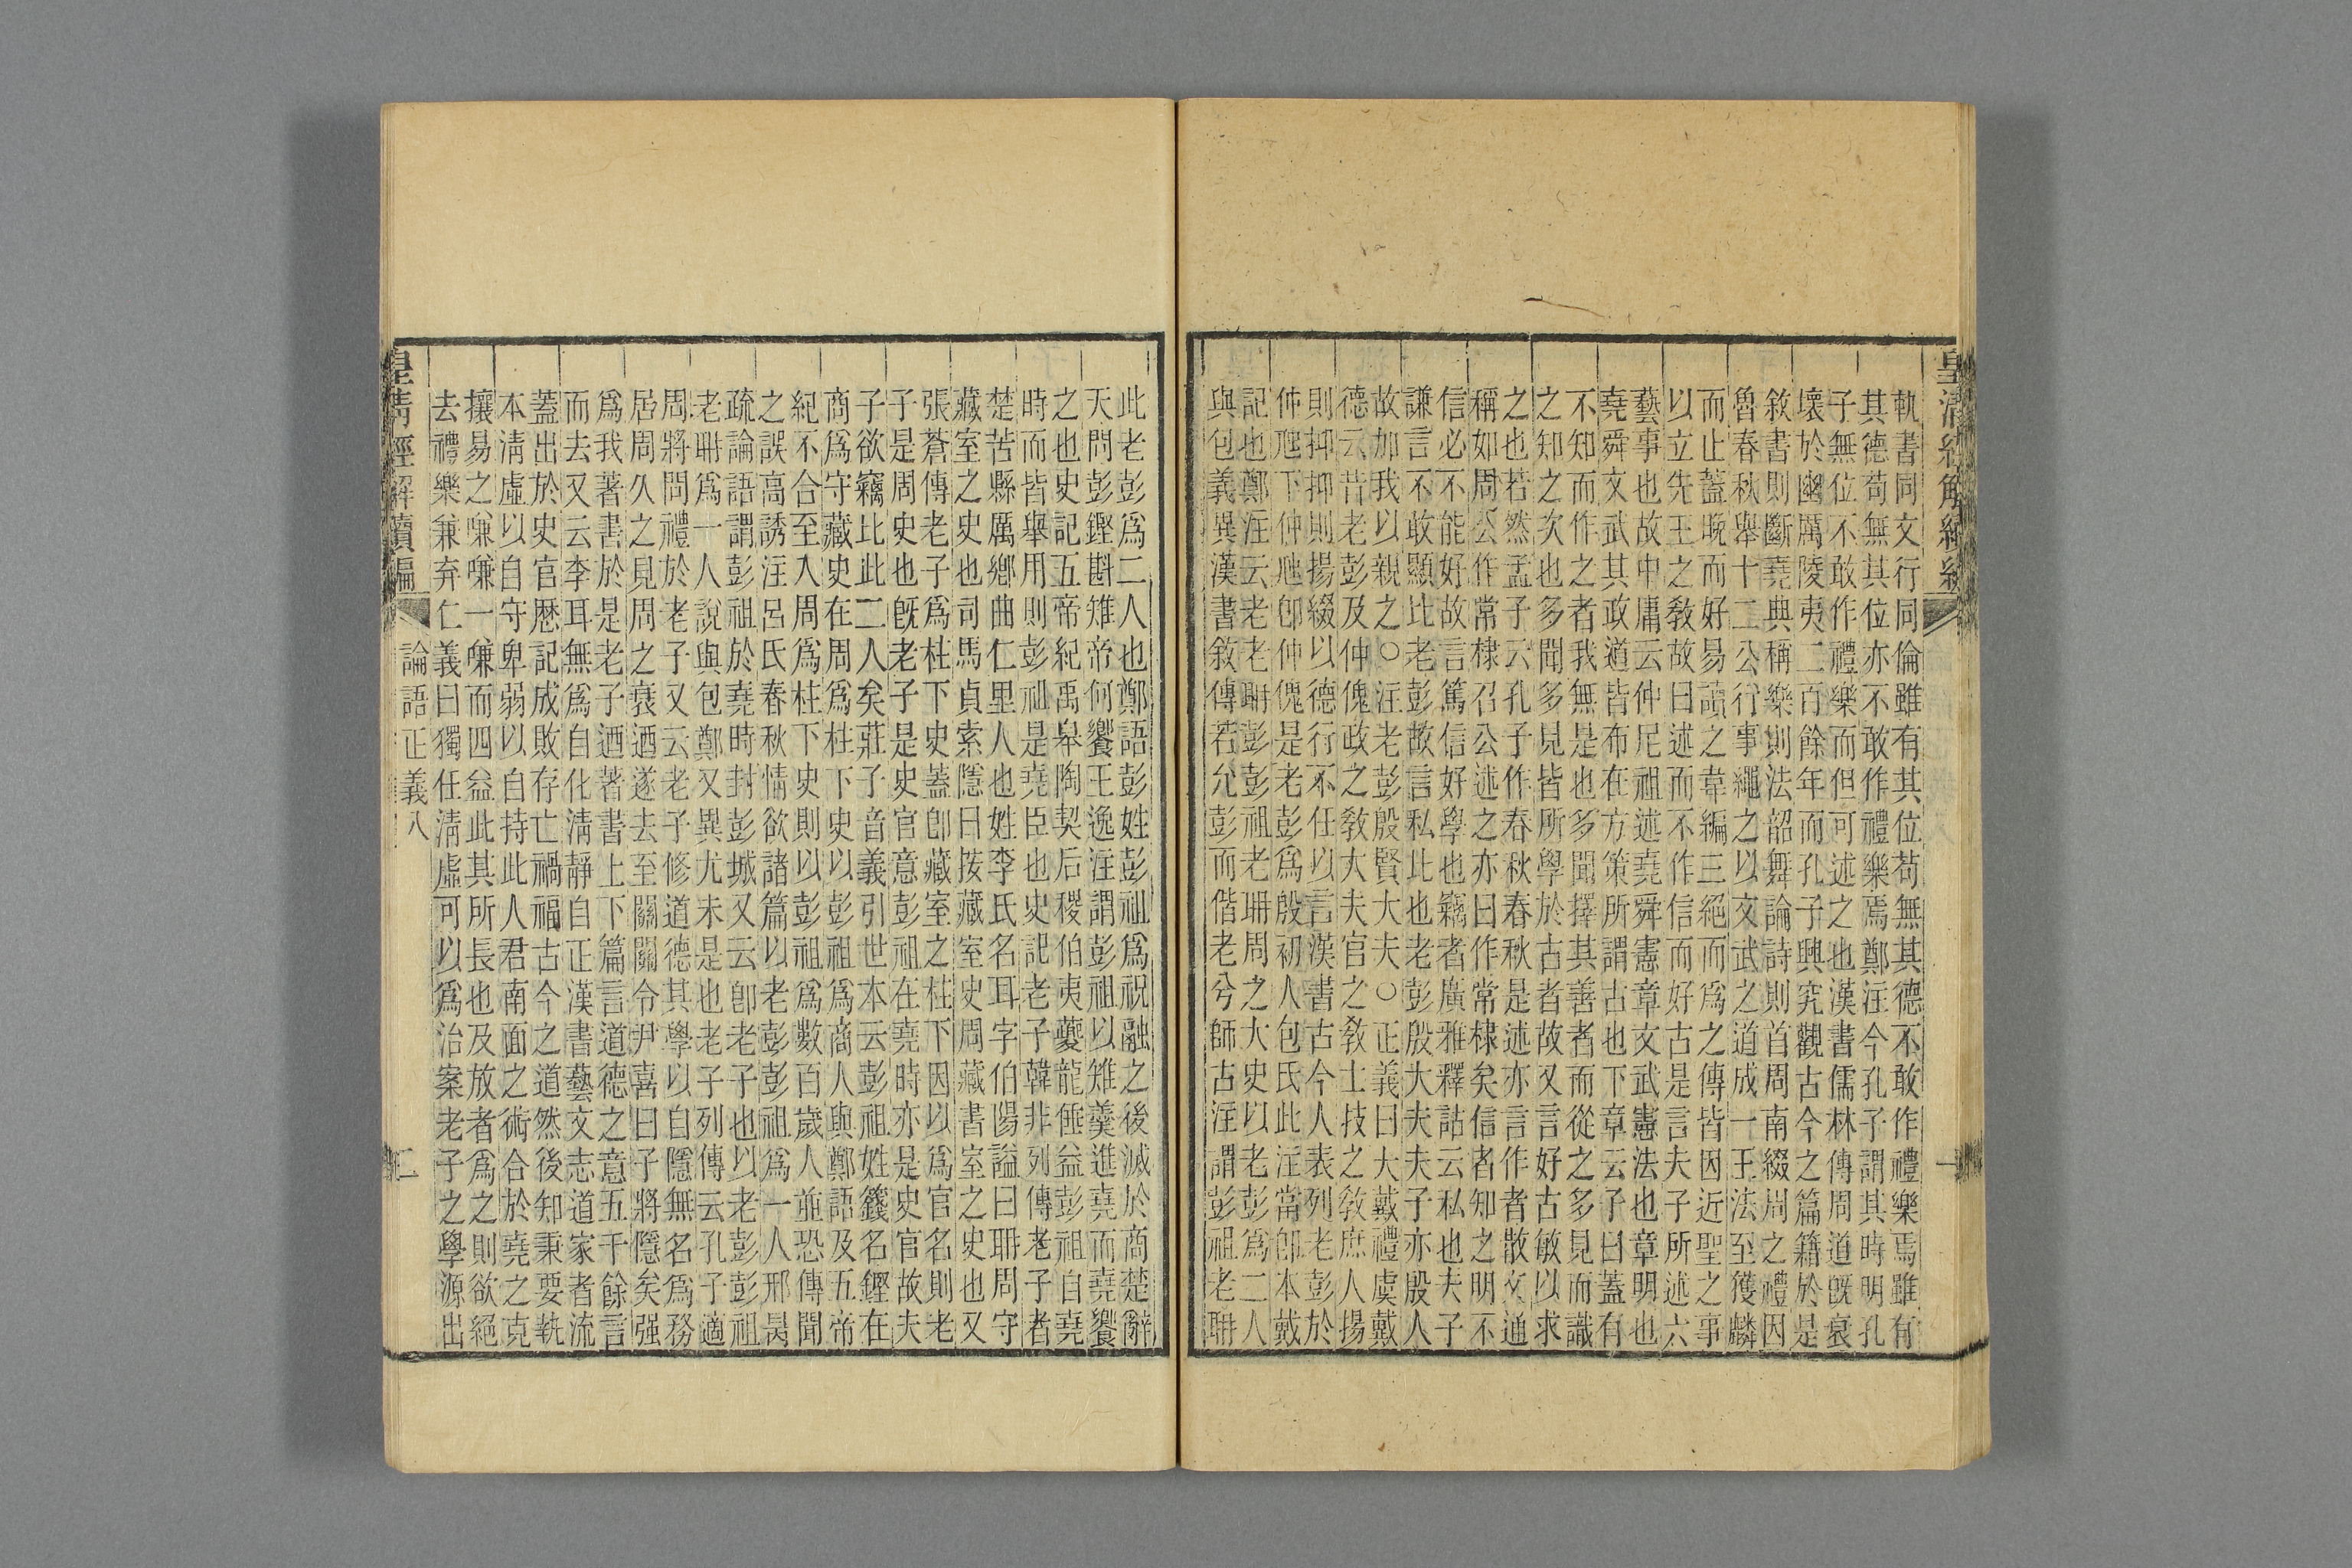 皇清經解續編
軌書同文行同倫雖有其位苟無其德不敢作禮樂焉雖有
其德苟無其位亦不敢作禮樂焉鄭注今孔子謂其時明孔
子無位不敢作禮樂而但可述之也漢書儒林傳周道旣衰
壞於幽厲陵夷二百餘年而孔子興究觀古今之篇籍於是
敘書則斷堯典稱樂則法韶舞論詩則首周南綴周之禮因
魯春秋舉十二公行事繩之以文武之道成一王法至獲麟
而止蓋晚而好易讀之韋編三絕而爲之傳皆因近聖之事
以立先王之敎故曰述而不作信而好古是言夫子所述六
藝事也故中庸云仲尼祖述堯舜憲章文武憲法也章明也
堯舜文武其政道皆布在方策所謂古也下章云子曰蓋有
不知而作之者我無是也多聞擇其善者而從之多見而識
之知之次也多聞多見皆所學於古者故又言好古敏以求
之也若然孟子云孔子作春秋春秋是述亦言作者散文通
稱如周公作常棣召公述之亦曰作常棣矣信者知之明不
信必不能好故言篤信好學也竊者廣雅釋詁云私也夫子
謙言不敢顯比老彭故言私此也老彭殷大夫夫子亦殷人
故加我以親之○注老彭殷賢大夫○正義曰大戴禮虞戴
德云昔老彭及仲傀政之敎大夫官之敎士技之敎庶人揚
則抑抑則揚綴以德行不任以言漢書古今人表列老彭於
仲虺下仲虺卽仲傀是老彭爲殷初人包氏此注當卽本戴
記也鄭注云老老聃彭彭祖老聃周之大史以老彭爲二人
與包義異漢書敘傳若允彭而偕老兮師古注謂彭祖老聃
一
此老彭爲二人也鄭語彭姓彭祖爲祝融之後滅於商楚辭
天問彭鏗斟雉帝何饗王逸注謂彭祖以雉羹進堯而堯饗
之也史記五帝紀禹皋陶契后稷伯夷夔龍倕益彭祖自堯
時而皆舉用則彭祖是堯臣也史記老子韓非列傳老子者
楚苦縣厲鄉曲仁里人也姓李氏名耳字伯陽諡曰聃周守
藏室之史也司馬貞索隱曰按藏室史周藏書室之史也又
張蒼傳老子爲柱下史蓋卽藏室之柱下因以爲官名則老
子是周史也旣老子是史官意彭祖在堯時亦是史官故夫
子欲竊比此二人矣莊子音義引世本云彭祖姓籛名鏗在
商爲守藏史在周爲柱下史以彭祖爲商人與鄭語及五帝
紀不合至入周爲柱下史則以彭祖爲數百歲人竝恐傳聞
之誤高誘注呂氏春秋情欲諸篇以老彭彭祖爲一人邢昺
疏論語謂彭祖於堯時封彭城又云卽老子也以老彭彭祖
老聃爲一人說與包鄭又異尤未是也老子列傳云孔子適
周將問禮於老子又云老子修道德其學以自隱無名爲務
居周久之見周之衰迺遂去至關關令尹喜曰子將隱矣强
爲我著書於是老子迺著書上下篇言道德之意五千餘言
而去又云李耳無爲自化淸靜自正漢書藝文志道家者流
蓋出於史官歷記成敗存亡禍福古今之道然後知秉要執
本淸虛以自守卑弱以自持此人君南面之術合於堯之克
攘易之嗛嗛一嗛而四益此其所長也及放者爲之則欲絕
去禮樂兼弃仁義曰獨任淸虛可以爲治案老子之學源出
皇淸經解續編
論語正義八
二